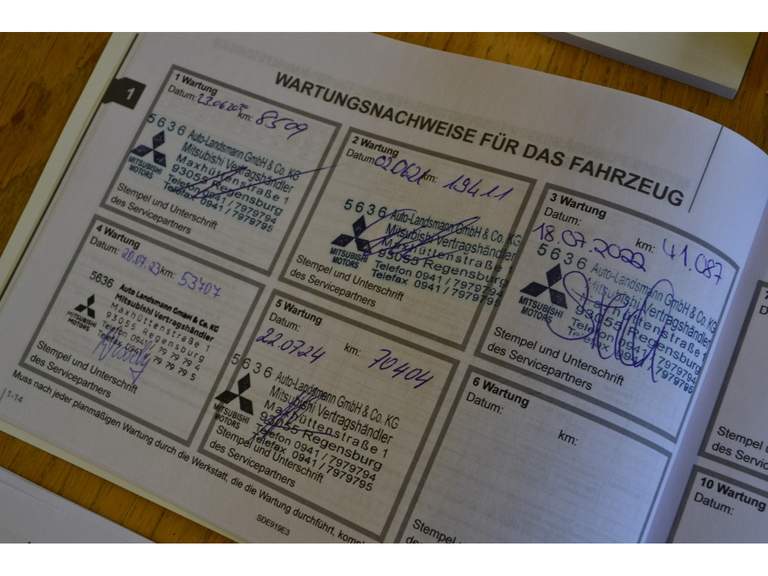 WARTUNGSNACHWEISE FÜR DAS FAHRZEUG
1
1 Wartung
Datum: 23.06.20 km: 8509
5636 Auto-Landsmann GmbH & Co. KG
Mitsubishi Vertragshändler
Maxhüttenstraße 1
93055 Regensburg
Telefon 0941/7979794
Telefax 0941/7979795
MITSUBISHI
MOTORS
Stempel und Unterschrift
des Servicepartners
2 Wartung
Datum: 02.06.21 km: 19411
5636 Auto-Landsmann GmbH & Co. KG
Mitsubishi Vertragshändler
Maxhüttenstraße 1
93055 Regensburg
Telefon 0941/7979794
Telefax 0941/7979795
MITSUBISHI
MOTORS
Stempel und Unterschrift
des Servicepartners
3 Wartung
Datum: km:
18.07.2022 41.087
5636 Auto-Landsmann GmbH & Co. KG
Mitsubishi Vertragshändler
Maxhüttenstraße 1
93055 Regensburg
Telefon 0941/7979794
Telefax 0941/7979795
MITSUBISHI
MOTORS
Stempel und Unterschrift
des Servicepartners
4 Wartung
Datum: 20.07.23 km: 53407
5636 Auto Landsmann GmbH & Co. KG
Mitsubishi Vertragshändler
Maxhüttenstraße 1
93055 Regensburg
MITSUBISHI
MOTORS
Stempel und Unterschrift
des Servicepartners
5 Wartung
Datum: km:
22.07.24 70404
5636 Auto-Landsmann GmbH & Co. KG
Mitsubishi Vertragshändler
Maxhüttenstraße 1
93055 Regensburg
Telefon 0941/7979794
Telefax 0941/7979795
MITSUBISHI
MOTORS
Stempel und Unterschrift
des Servicepartners
6 Wartung
Datum:
km:
Stempel und
des Service
Stempel
des Ser
10 Wartung
Datum:
Muss nach jeder planmäßigen Wartung durch die Werkstatt, die die Wartung durchführt, komple
1-14
SDE919E3